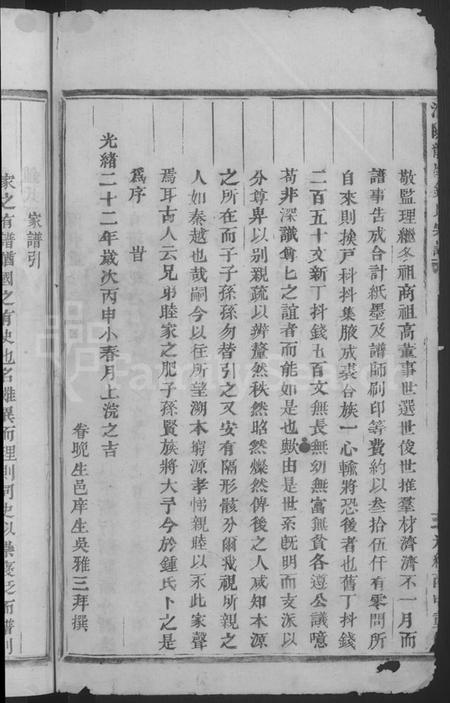 敬監理繼冬祖商祖高董事世選世俊世推羣材濟濟不一月而
譜事告成合計紙墨及譜師刷印等費約以叁拾伍仟有零問所
自來則挨戶科抖集腋成裘合族一心輸將恐後者也舊丁抖錢
二百五十文新丁抖錢五百文無長無幼無富無貧各遵公議噫
苟非深識尊匕之誼者而能如是也歟由是世系旣明而支派以
分尊卑以別親疏以辨釐然秩然昭然燦然俾後之人咸知本源
之所在而子子孫孫勿替引之又安有隔形骸分爾我視所親之
人如秦越也哉嗣今以往所望溯本窮源孝悌親睦以永此家聲
焉耳古人云兄弟睦家之肥子孫賢族將大予今於鍾氏卜之是
爲序 旹
光緒二十二年歲次丙申小春月上浣之吉
眷晚生邑庠生吳雅三拜撰
家譜引
家之有譜猶國之有史也名雖異而理則同史以
FamilySearch